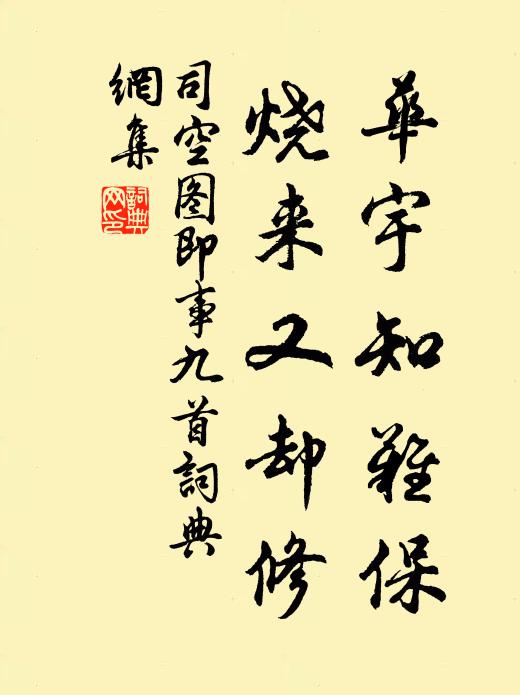 華宇知難保
烧来又却修
司空图即事九首詞典
網集
詞典網印